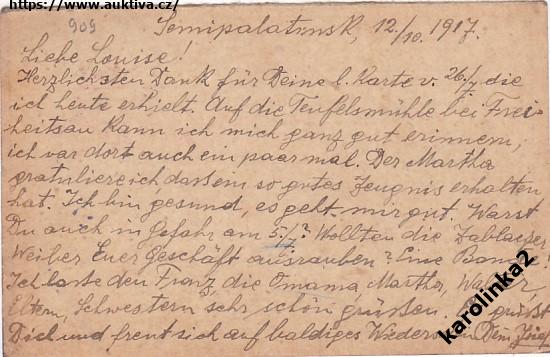 https://www.auktiva.cz/
909
Semipalatinsk, 12./10. 1917.
Liebe Louise!
Herzlichsten Dank für Deine l. Karte v. 26./ die
ich heute erhielt. Auf die Teufelsmühle bei Frei-
heitsau kann ich mich ganz gut erinnern,
ich war dort auch ein paar mal. Der Martha
gratuliere ich dass ein so gutes Zeugnis erhalten
hat. Ich bin gesund, es geht mir gut. Warst
Du auch in Gefahr am 5./? Wollten die
Weiber Euer Geschäft ausrauben? Eine
Ich lasse den Franz, die Omama, Martha,
Eltern, Schwestern sehr schön grüssen. grüsst
Dich und freut sich auf baldiges Dein Josef
karolinka2